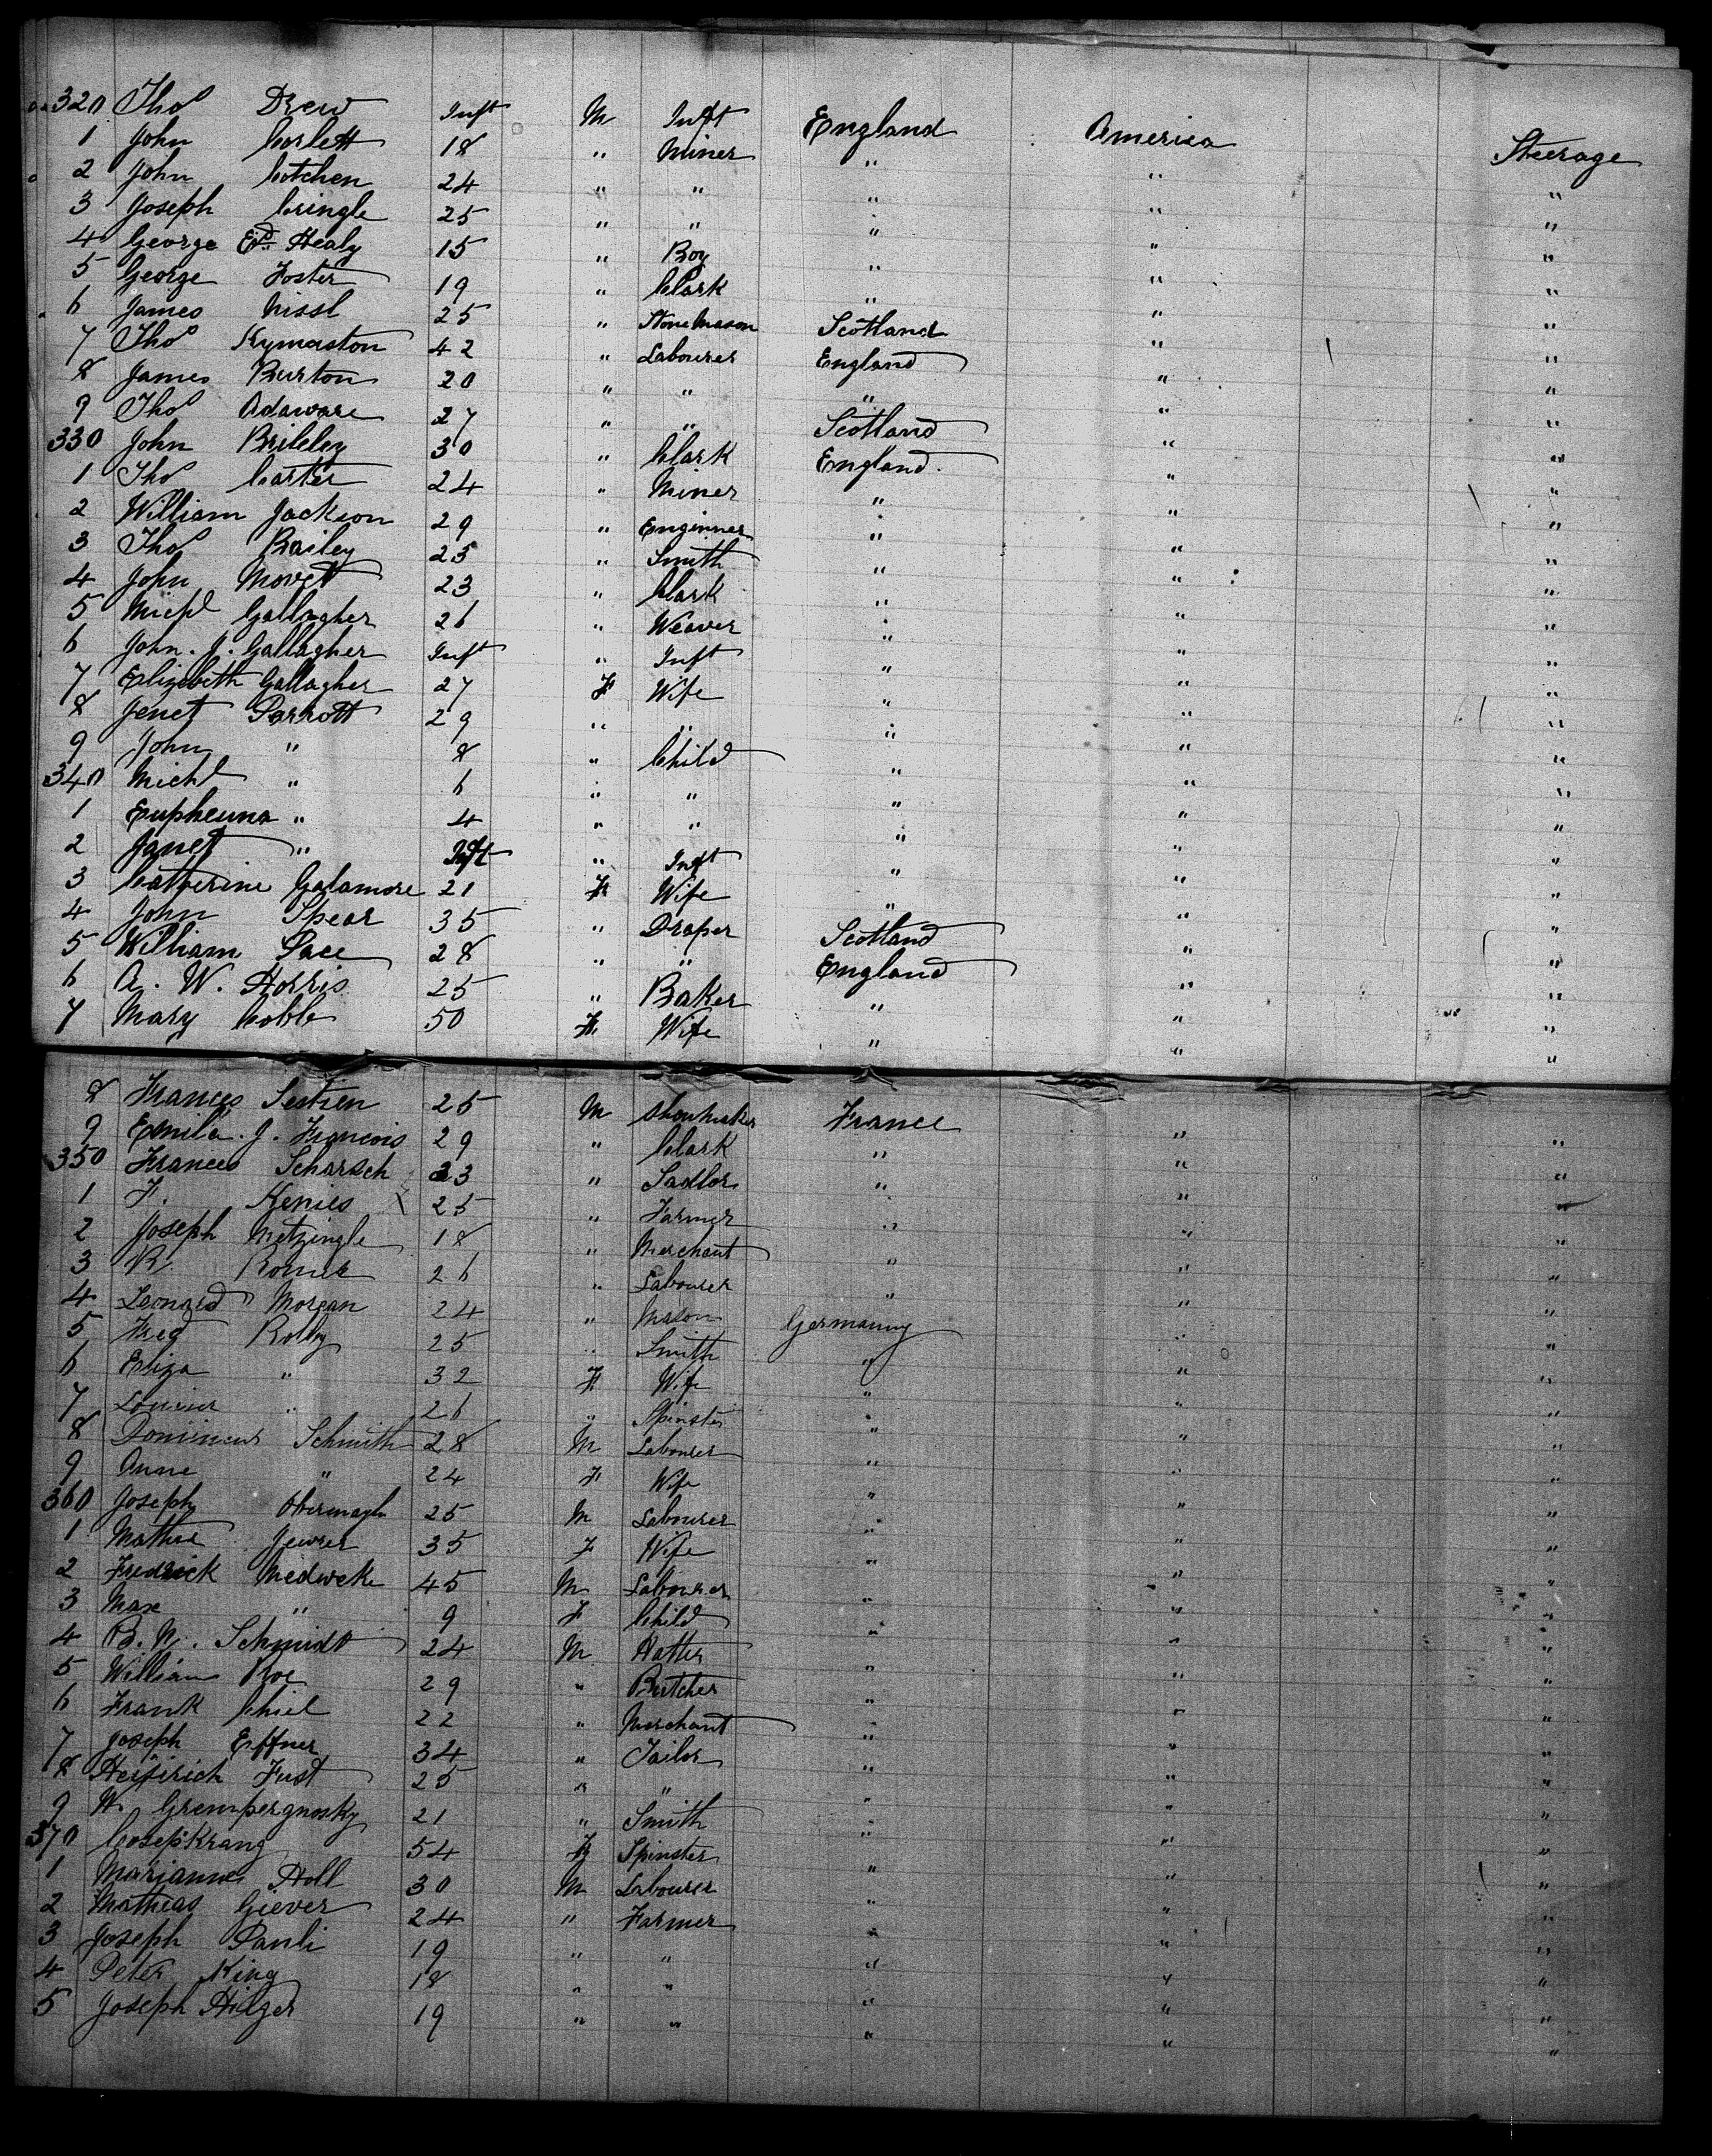 320 Thos Drew Inft M Inft England America Steerage
1 John Corlett 18 " Miner " " "
2 John Cotchen 24 " " " " "
3 Joseph Cringle 25 " " " " "
4 George Ed. Healy 15 " Boy " " "
5 George Foster 19 " Clark " " "
6 James Nissl 25 " Stone Mason Scotland " "
7 Thos Kymaston 42 " Labourer England " "
8 James Burton 20 " " " " "
9 Thos Adaware 27 " " Scotland " "
330 John Brileley 30 " Clark England " "
1 Thos Carter 24 " Miner " " "
2 William Jackson 29 " Enginner " " "
3 Thos Bailey 25 " Smith " " "
4 John Movet 23 " Clark " " "
5 Michl Gallagher 26 " Weaver " " "
6 John. J. Gallagher Inft " Inft " " "
7 Elizebeth Gallagher 27 F Wife " " "
8 Jenet Parrott 29 " " " " "
9 John " 8 " Child " " "
340 Michl " 6 " " " " "
1 Eupheuna " 4 " " " " "
2 Janet " Inft " Inft " " "
3 Catherine Galamore 21 F Wife " " "
4 John Spear 35 " Draper Scotland " "
5 William Pace 28 " " England " "
6 A. W. Horris 25 " Baker " " "
7 Mary Coble 50 F. Wife " " "
8 Frances Sestien 25 M Shoemaker France " "
9 Emila. J. Francois 29 " Clark " " "
350 Frances Scharsch 23 " Sadlor " " "
1 F. Kenies 25 " Farmer " " "
2 Joseph Metzingle 18 " Merchant " " "
3 R. 26 " Labourer " " "
4 Leonard Morgan 24 " Mason Germanny " "
5 Fred Rolby 25 " Smith " " "
6 Eliza " 32 F. Wife " " "
7 " 26 " Spinster " " "
8 Schmith 28 M Labourer " " "
9 Anne " 24 F Wife " " "
360 Joseph 25 M Labourer " " "
1 35 F Wife " " "
2 Fredrick Medweke 45 M Labourer " " "
3 Max " 9 F Child " " "
4 B. W. Schmidt 24 M Hatter " " "
5 William Roe 29 " Butcher " " "
6 Frank Chiel 22 " Merchant " " "
7 Joseph Effner 34 " Tailor " " "
8 Heinrich Fust 25 " " " " "
9 W. Grempergnosky 21 " Smith " " "
370 Cosepkrang 54 F Spinster " " "
1 Marianne Holl 30 M Labourer " " "
2 Matheas Giever 24 " Farmer " " "
3 Joseph Pauli 19 " " " " "
4 Peter King 18 " " " " "
5 Joseph Hilger 19 " " " " "